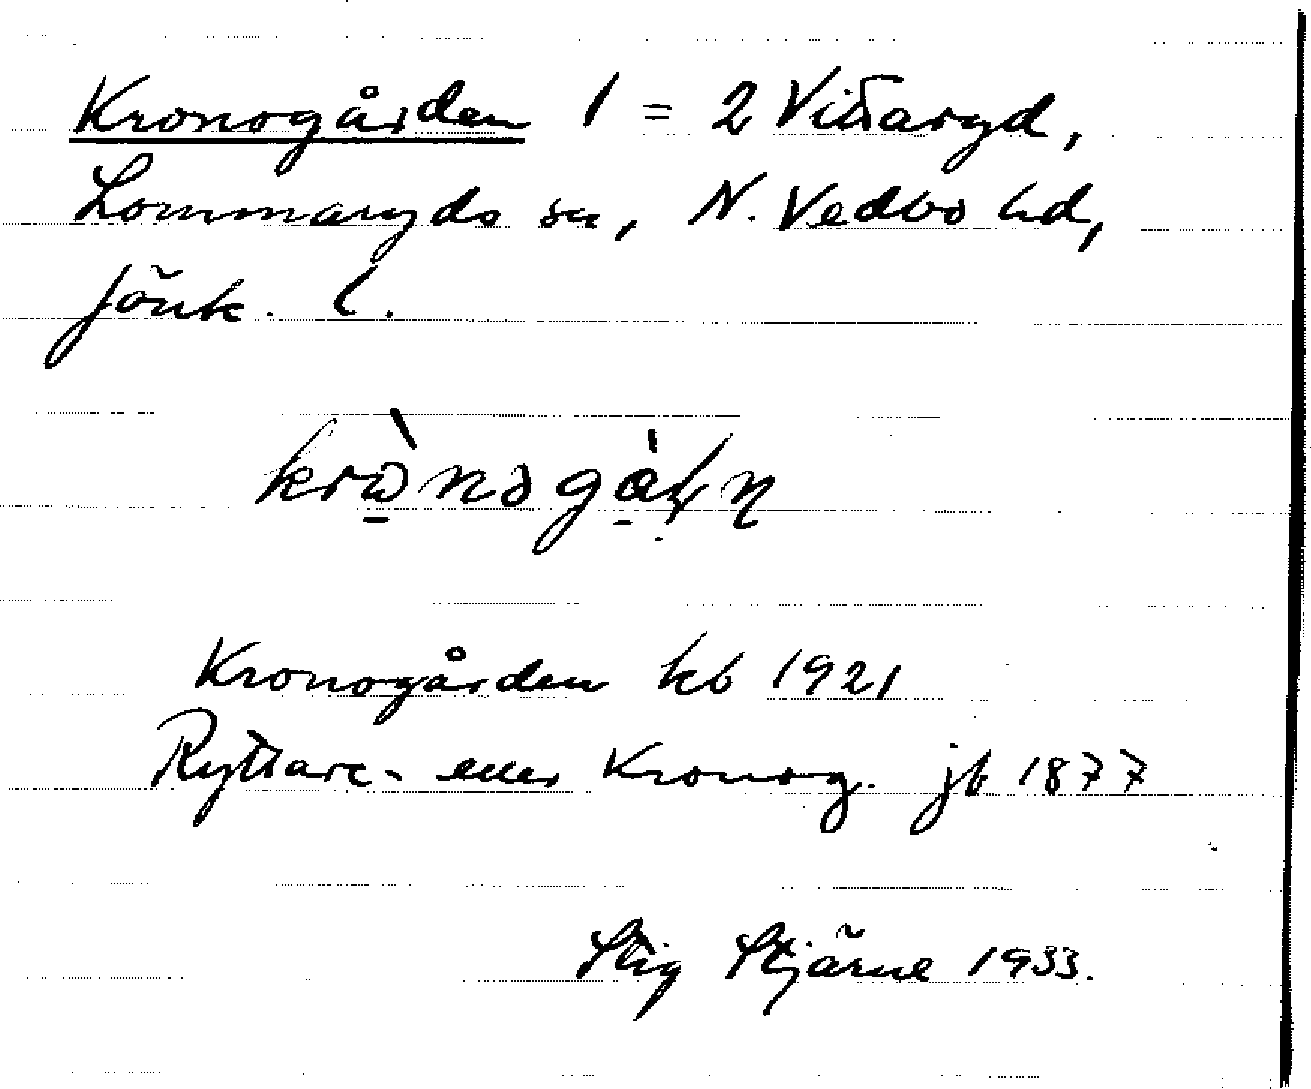 Kronogården 1 = 2 Vittaryd,
Lommaryds sn, N. Vedbo hd,
Jönk. l.
Kronogården kb 1921
Ryttare- eller Kronog. jb 1877
Stig Stjärne 1933.